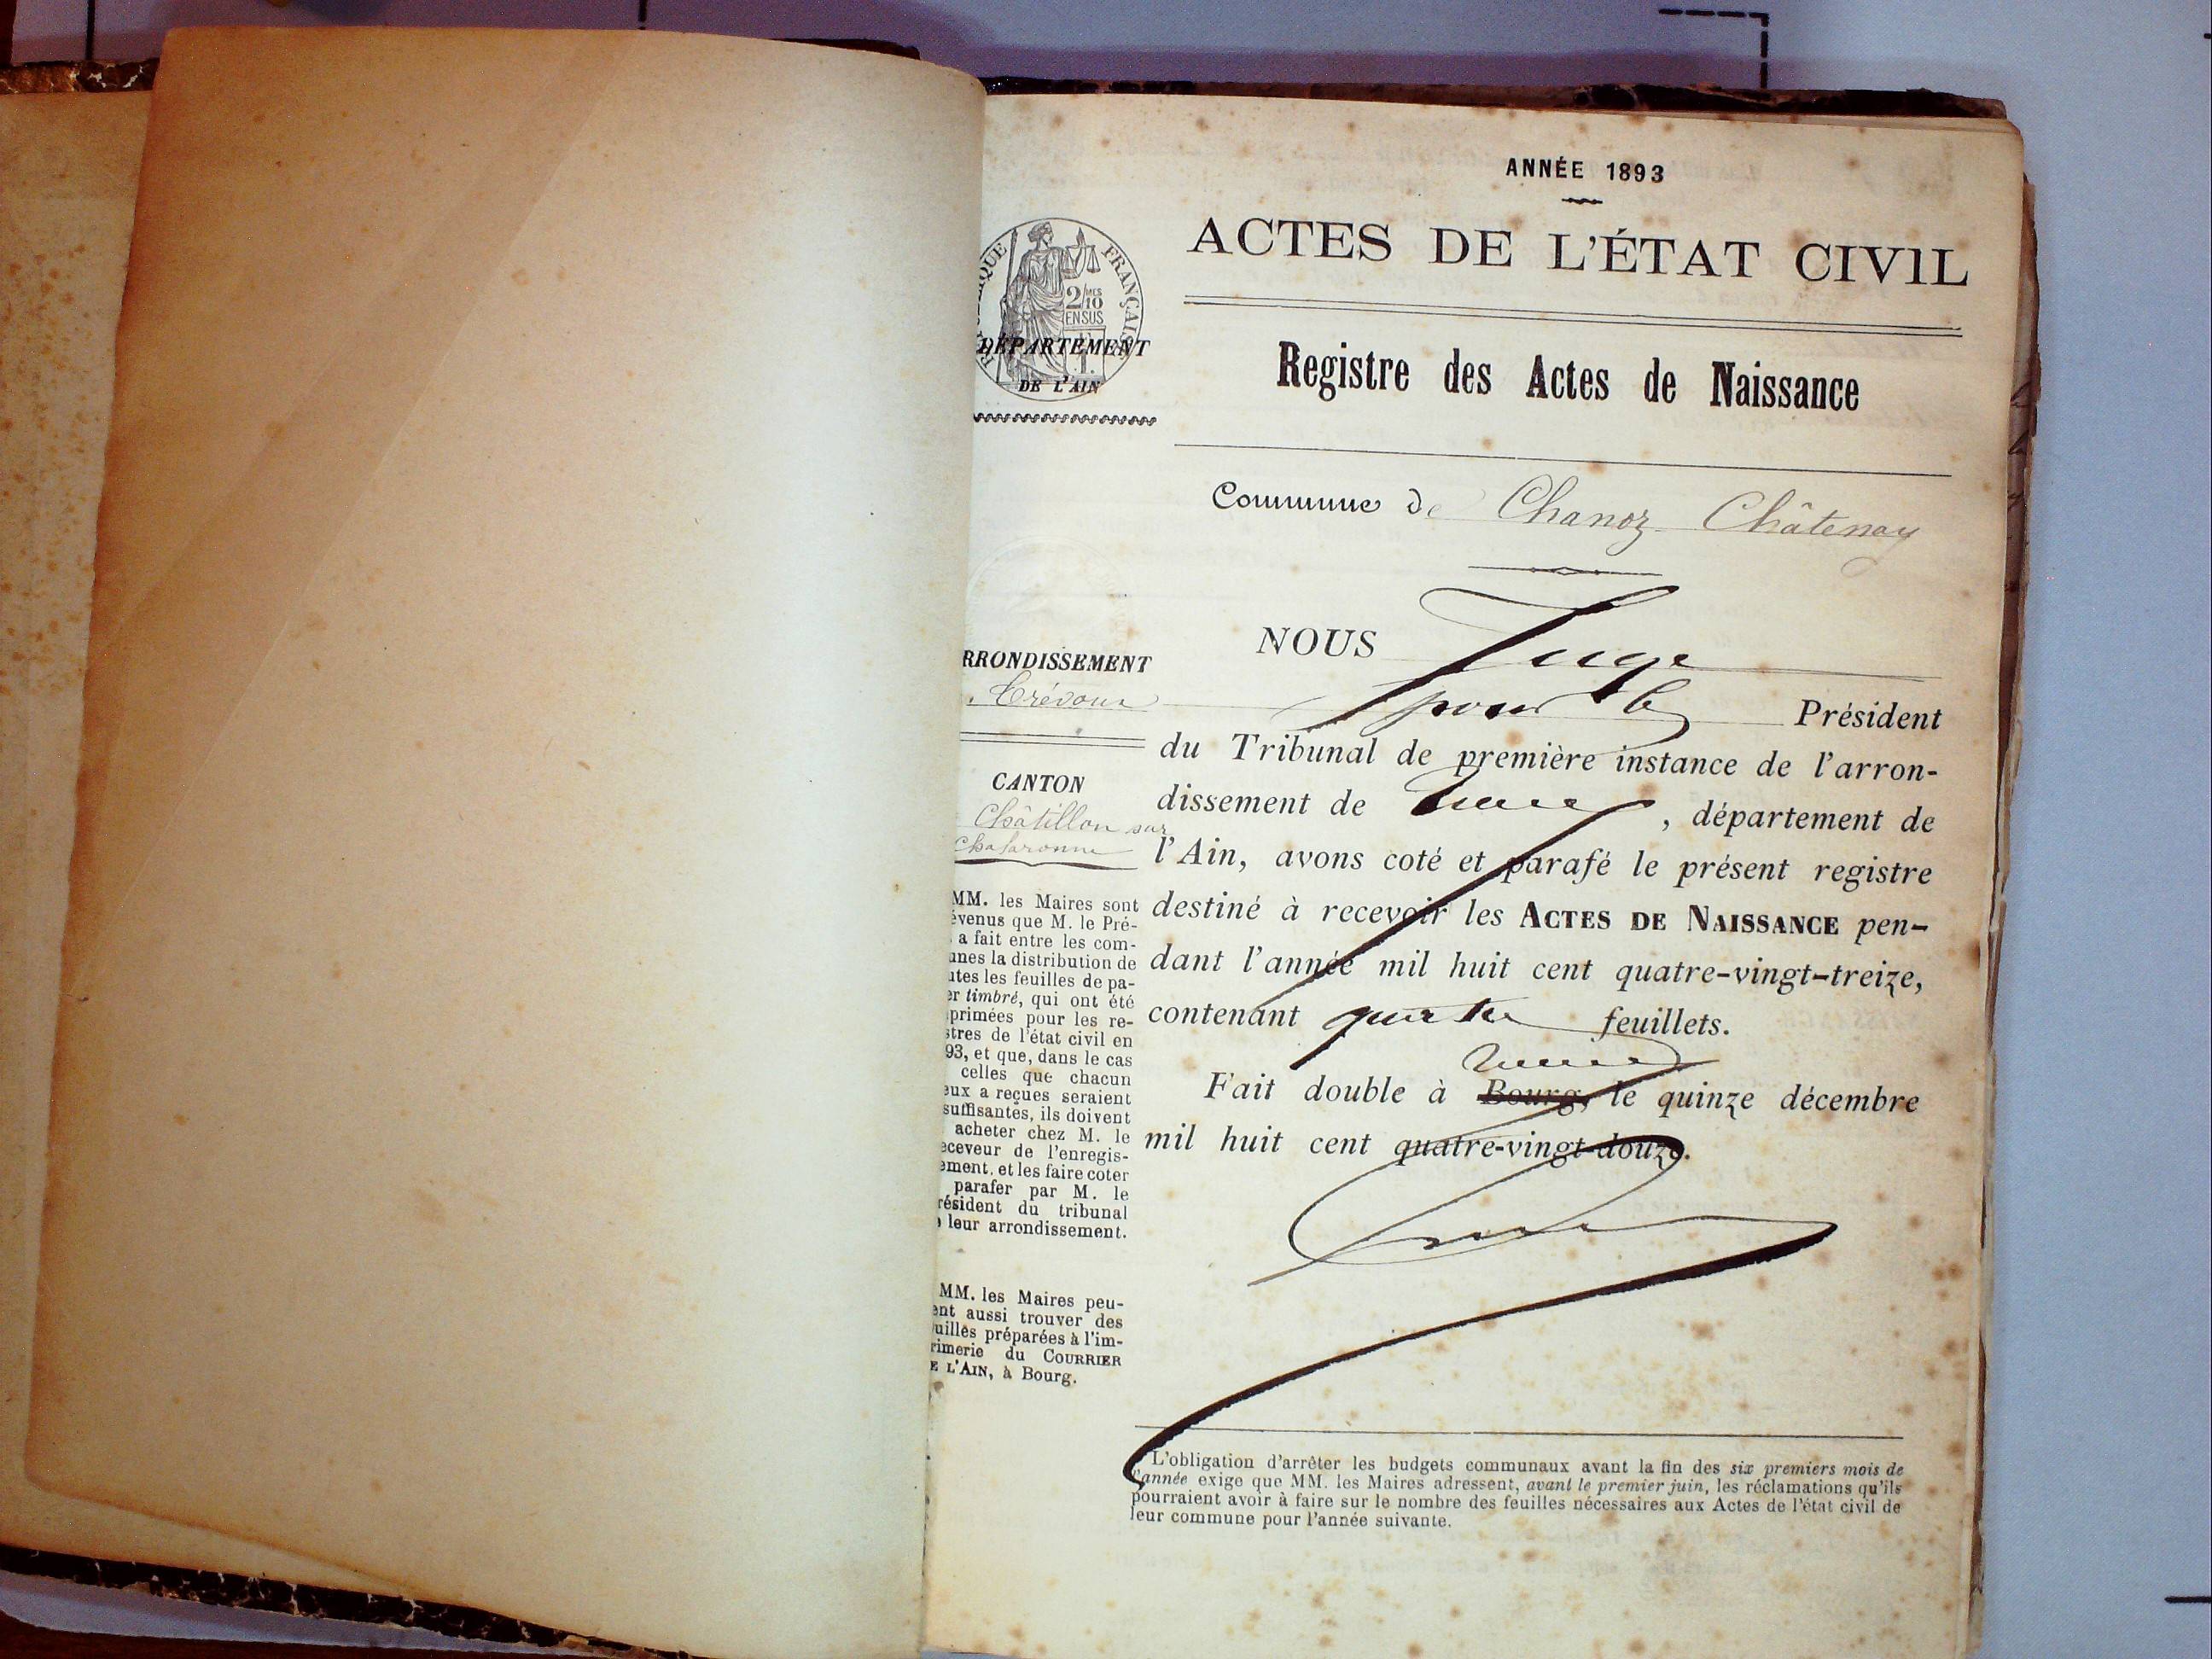 ANNÉE 1893
ACTES DE L'ÉTAT CIVIL
FRANÇAISE
2/10
MES
EN SUS
DÉPARTEMENT
DE L'AIN
Registre des Actes de Naissance
Commune de Chanoz Châtenay
NOUS Juge
RRONDISSEMENT
Trévoux
pour le Président
du Tribunal de première instance de l'arron-
dissement de , département de
l'Ain, avons coté et parafé le présent registre
destiné à recevoir les ACTES DE NAISSANCE pen-
dant l'année mil huit cent quatre-vingt-treize,
contenant quatre feuillets.
Fait double à Bourg, le quinze décembre
mil huit cent quatre-vingt-douze.
CANTON
Châtillon sur
Chalaronne
MM. les Maires sont
évenus que M. le Pré-
a fait entre les com-
unes la distribution de
utes les feuilles de pa-
er timbré, qui ont été
primées pour les re-
stres de l'état civil en
93, et que, dans le cas
celles que chacun
eux a reçues seraient
suffisantes, ils doivent
acheter chez M. le
eceveur de l'enregis-
ement, et les faire coter
parafer par M. le
résident du tribunal
leur arrondissement.
MM. les Maires peu-
ent aussi trouver des
uilles préparées à l'im-
rimerie du COURRIER
E L'AIN, à Bourg.
L'obligation d'arrêter les budgets communaux avant la fin des six premiers mois de
l'année exige que MM. les Maires adressent, avant le premier juin, les réclamations qu'ils
pourraient avoir à faire sur le nombre des feuilles nécessaires aux Actes de l'état civil de
leur commune pour l'année suivante.